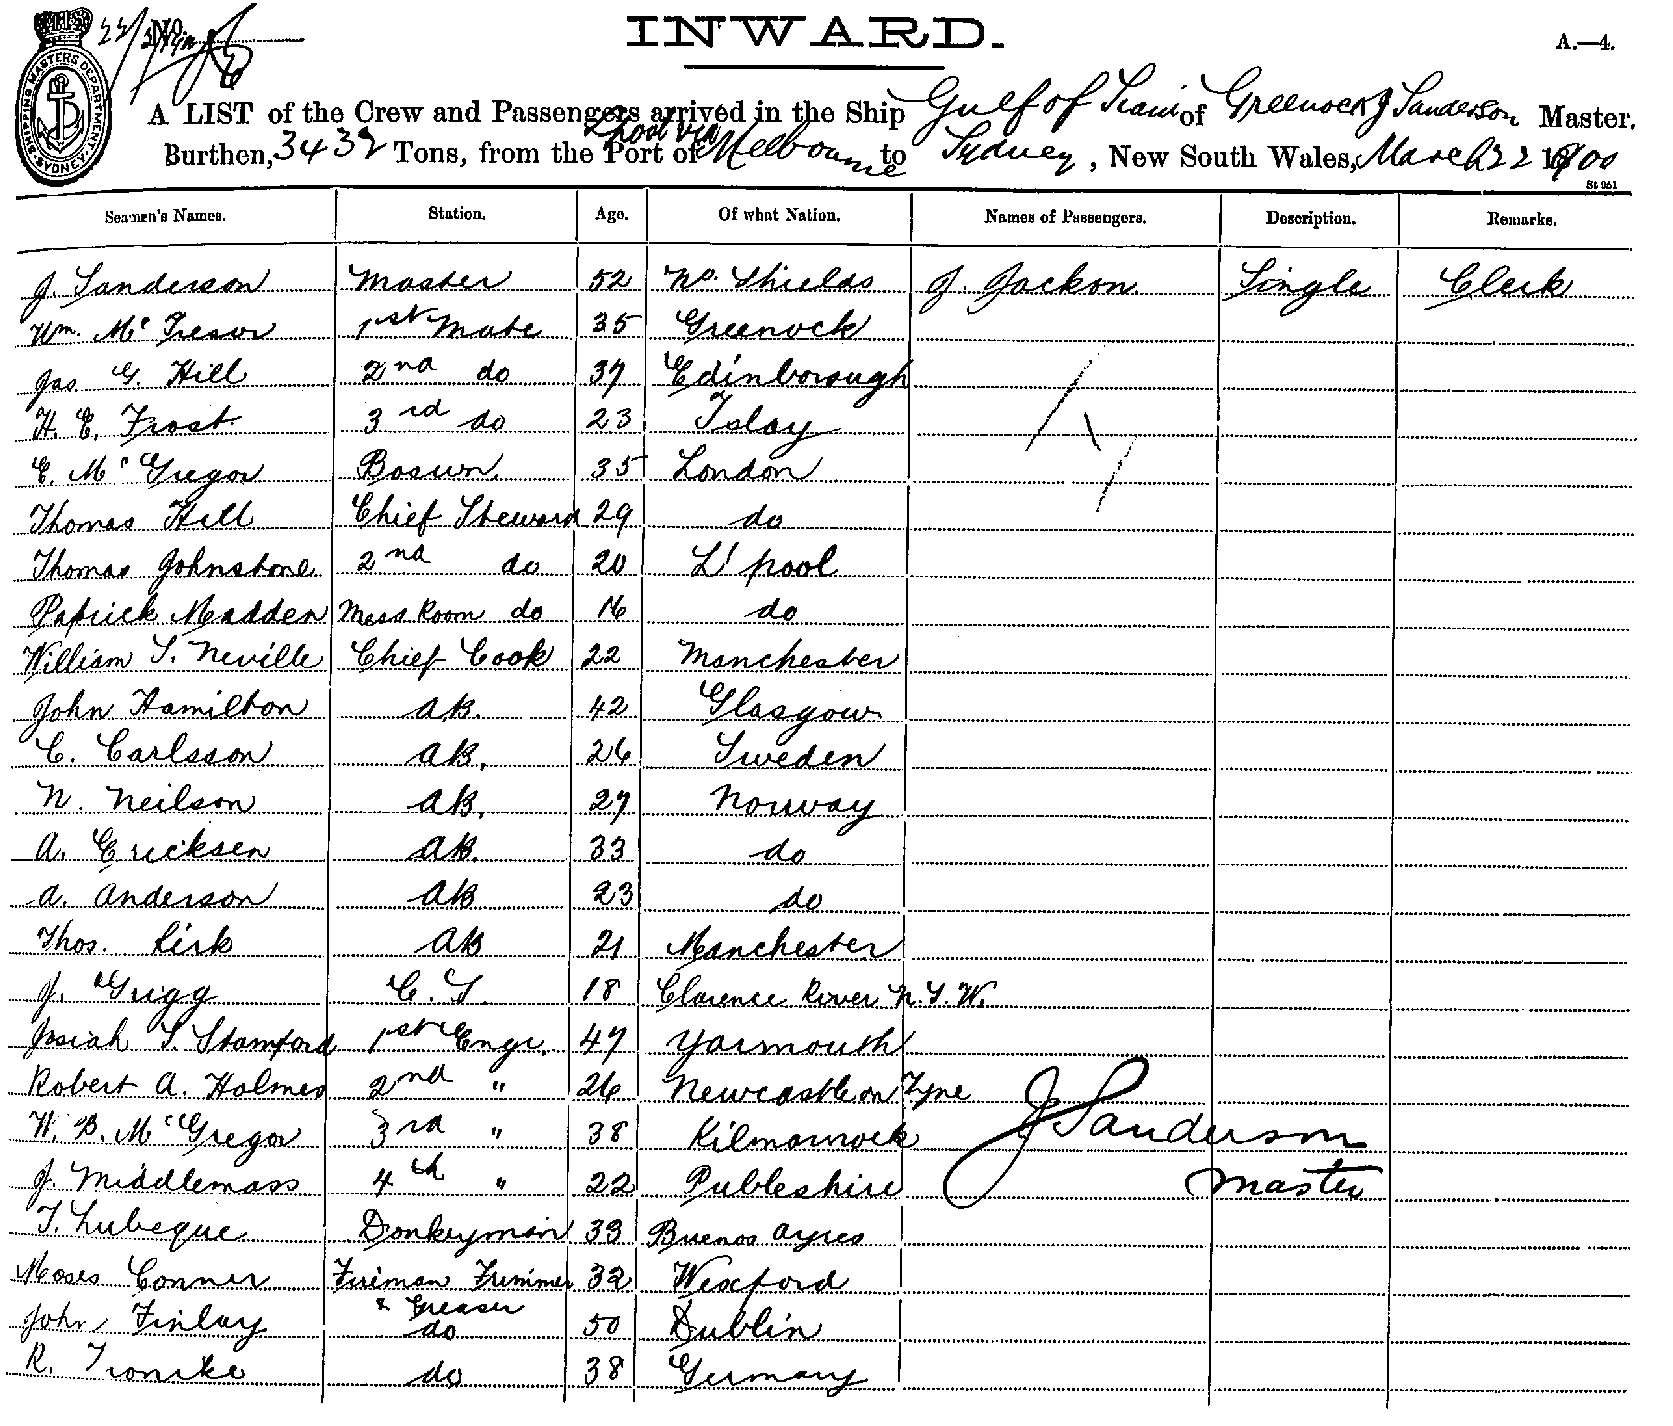 22/3/
No.
INWARD.
A.—4.
SHIPPING MASTERS DEPARTMENT SYDNEY
A LIST of the Crew and Passengers arrived in the Ship Gulf of Siam of Greenock J Sanderson Master.
Burthen, 3432 Tons, from the Port of L'pool via Melbourne to Sydney, New South Wales, March 22 1900
St 951
Seamen's Names. Station. Age. Of what Nation. Names of Passengers. Description. Remarks.
J. Sanderson Master 52 No. Shields J. Jackon Single Clerk
Wm. Mc 1st Mate 35 Greenock
Jas G. Hill 2nd do 37 Edinborough
H. E. Frost 3rd do 23 Islay
E. McGregor Bosun. 35 London
Thomas Hill Chief Steward 29 do
Thomas Johnstone 2nd do 20 L'pool
Patrick Madden Mess Room do 16 do
William S. Neville Chief Cook 22 Manchester
John Hamilton AB. 42 Glasgow
C. Carlsson AB. 26 Sweden
N. Neilson AB. 27 Norway
A. Ericksen AB. 33 do
A. Anderson AB 23 do
Thos. Kirk AB 21 Manchester
J. Grigg C.S. 18 Clarence River N.S.W.
Josiah S. Stamford 1st Engr. 47 Yarmouth
Robert A. Holmes 2nd " 26 Newcastle on Tyne
W. B. McGregor 3rd " 38 Kilmarnock J Sanderson
J. Middlemass 4th " 22 Publeshire Master
T. Lubeque Donkeyman 33 Buenos Ayres
Moses Conner Fireman Trimmer 32 Wexford
& Greaser
John Finlay do 50 Dublin
R. do 38 Germany